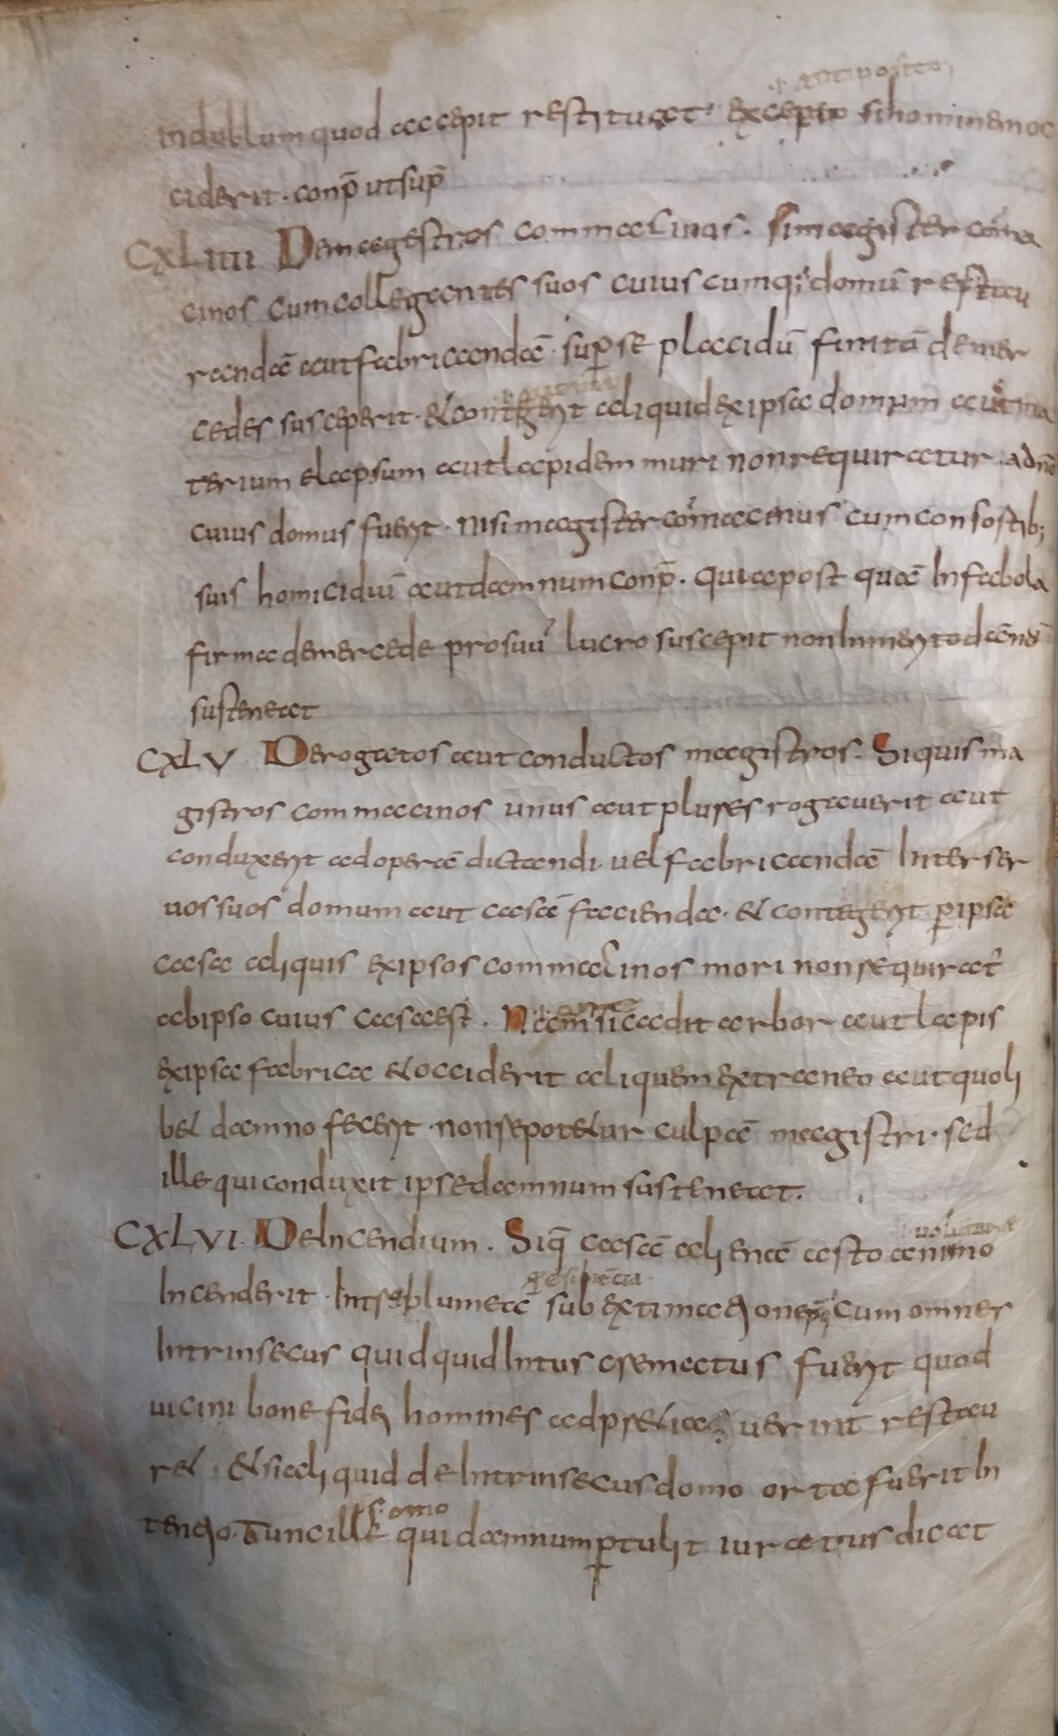 antiposito
In dublum quod accepit restituat. excepto si hominem oc
ciderit. conp̄ ut sup̄
CXLIIII De magestros commacinas. Si magister com̄a
cinos cum collegantes suos cuius cumq; domū restau
randā aut fabricandā super se placidū finitā de mer
cedes susceperit. & contegerit aliquid ex ipsa domum aut ma
terium elapsum aut lapidem muri non requiratur ad nē
cuius domus fuerit. Nisi magister com̄acinus cum consostib;
suis homicidiū aut damnum conp̄. qui a post quā In fabola
firma de mercede pro suū lucro suscepit non Inmerito dānū
susteneat
CXLV De rogatos aut conductos magistros. Si quis ma
gistros commacinos unus aut plures rogaverit aut
conduxerit ad operā dictandi. uel fabricandā Inter ser
uos suos domum aut casā facienda. & contegerit p̱ ipsa
casa aliquis ex ipsos commacinos mori non requirat̄
ab ipso cuius casa est. Nam si cadit arbor aut lapis
ex ipsa fabrica & occiderit aliquem extraneo aut quoli
b& damno fecerit. non rep&&ur culpā magistri. sed
ille qui conduxit ipse damnum susteneat.
uoluntarie
CXLVI. De Incendium. Siq̄ casā alienā asto animo
Incenderit. Intreplum eā sub extimationē cum omnes
Intrinsecus quidquid Intus crematus fuerit quod
uicini bone fidei homines adpr&iauerint restau
r&. & si aliquid de Intrinsecus domo orta fuerit In
omo
tentio. Tunc ille qui damnum p̱tulit iuratus dicat